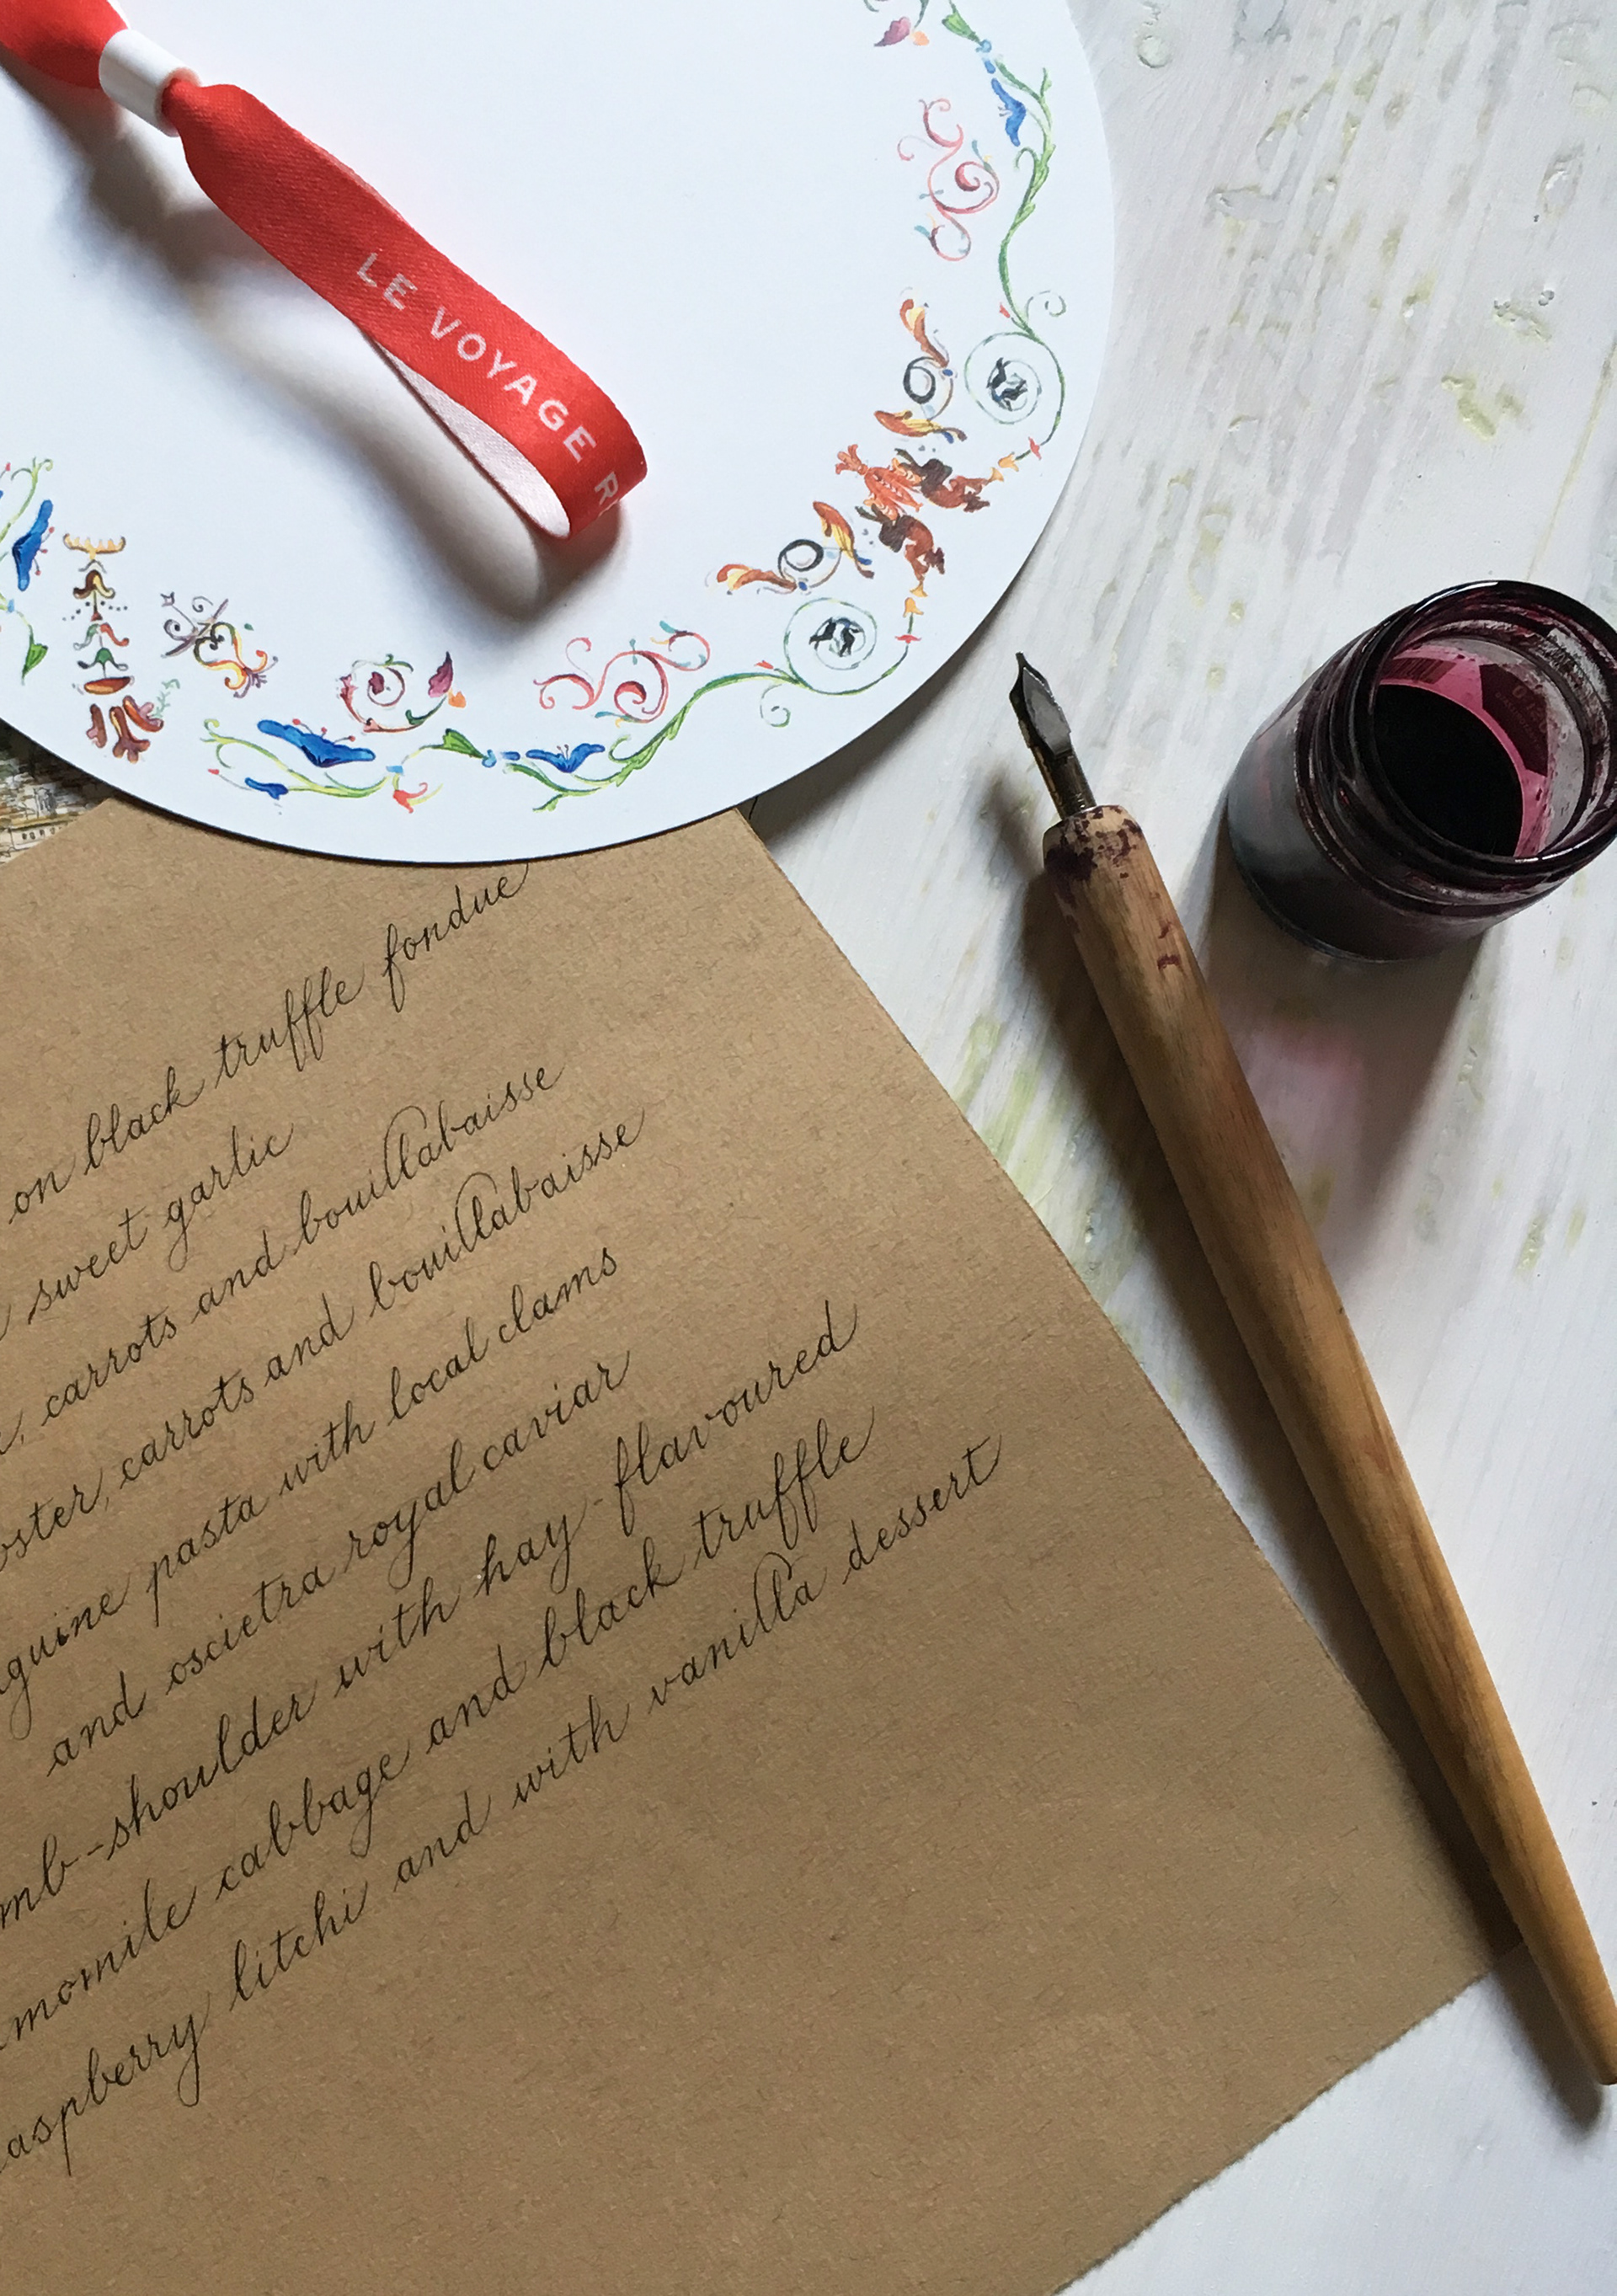 LE VOYAGE R
on black truffle fondue
sweet garlic
, carrots and bouillabaisse
oster, carrots and bouillabaisse
guine pasta with local clams
and oscietra royal caviar
mb-shoulder with hay-flavoured
momile cabbage and black truffle
aspberry litchi and with vanilla dessert